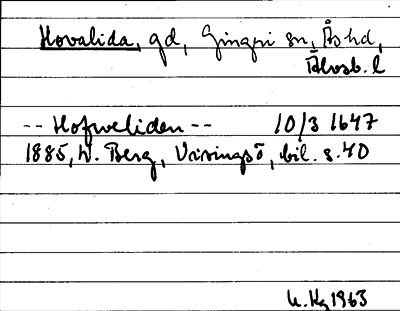 Hovalida, gd, Gingri sn, Ås hd,
Älvsb. l
-- Hofweliden -- 10/3 1647
1885, W. Berg, Visingsö, bil. s. 40
1963